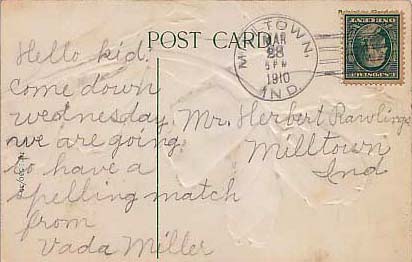 POST CARD
MILLTOWN,
MAR
28
5 PM
1910
IND.
Hello kid.
come down
wednesday.
we are going
to have a
spelling match
from
Vada Miller
Mr. Herbert Rawlings
Milltown
Ind